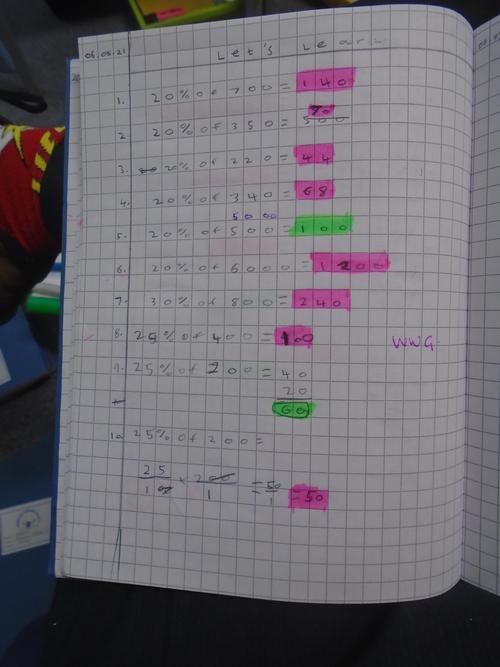 06.05.21 Let's Lear
1. 20% of 700 = 140
70
2 20% of 350 = 500
3. 20% of 220 = 44
4. 20% of 340 = 68
5000
5. 20% of 500 = 100
6. 20% of 6000 = 1200
7. 30% of 800 = 240
8. 25% of 400 = 100
WWG
9. 25% of 200 = 40
20
60
10 25% of 200 =
25 200 50
100 × 1 = 1 = 50